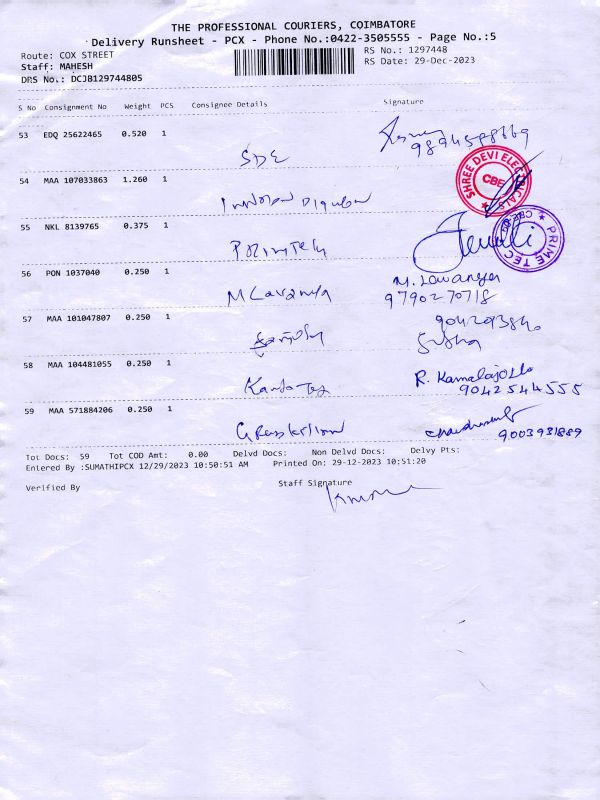 THE PROFESSIONAL COURIERS, COIMBATORE
Delivery Runsheet - PCX - Phone No.:0422-3505555 - Page No.:5
Route: COX STREET
RS No.: 1297448
Staff: MAHESH
RS Date: 29-Dec-2023
DRS No.: DCJB129744805
S No Consignment No Weight PCS Consignee Details Signature
53 EDQ 25622465 0.520 1
SDE
SHREE DEVI ELECTRICALS
CBE
54 MAA 107033863 1.260 1
55 NKL 8139765 0.375 1
PRIME TEC
56 PON 1037040 0.250 1
M Lavanya
9790270718
57 MAA 101047807 0.250 1
58 MAA 104481055 0.250 1
R. Kamalajothi
9042544555
59 MAA 571884206 0.250 1
9003931889
Tot Docs: 59 Tot COD Amt: 0.00 Delvd Docs: Non Delvd Docs: Delvy Pts:
Entered By :SUMATHIPCX 12/29/2023 10:50:51 AM Printed On: 29-12-2023 10:51:20
Verified By Staff Signature